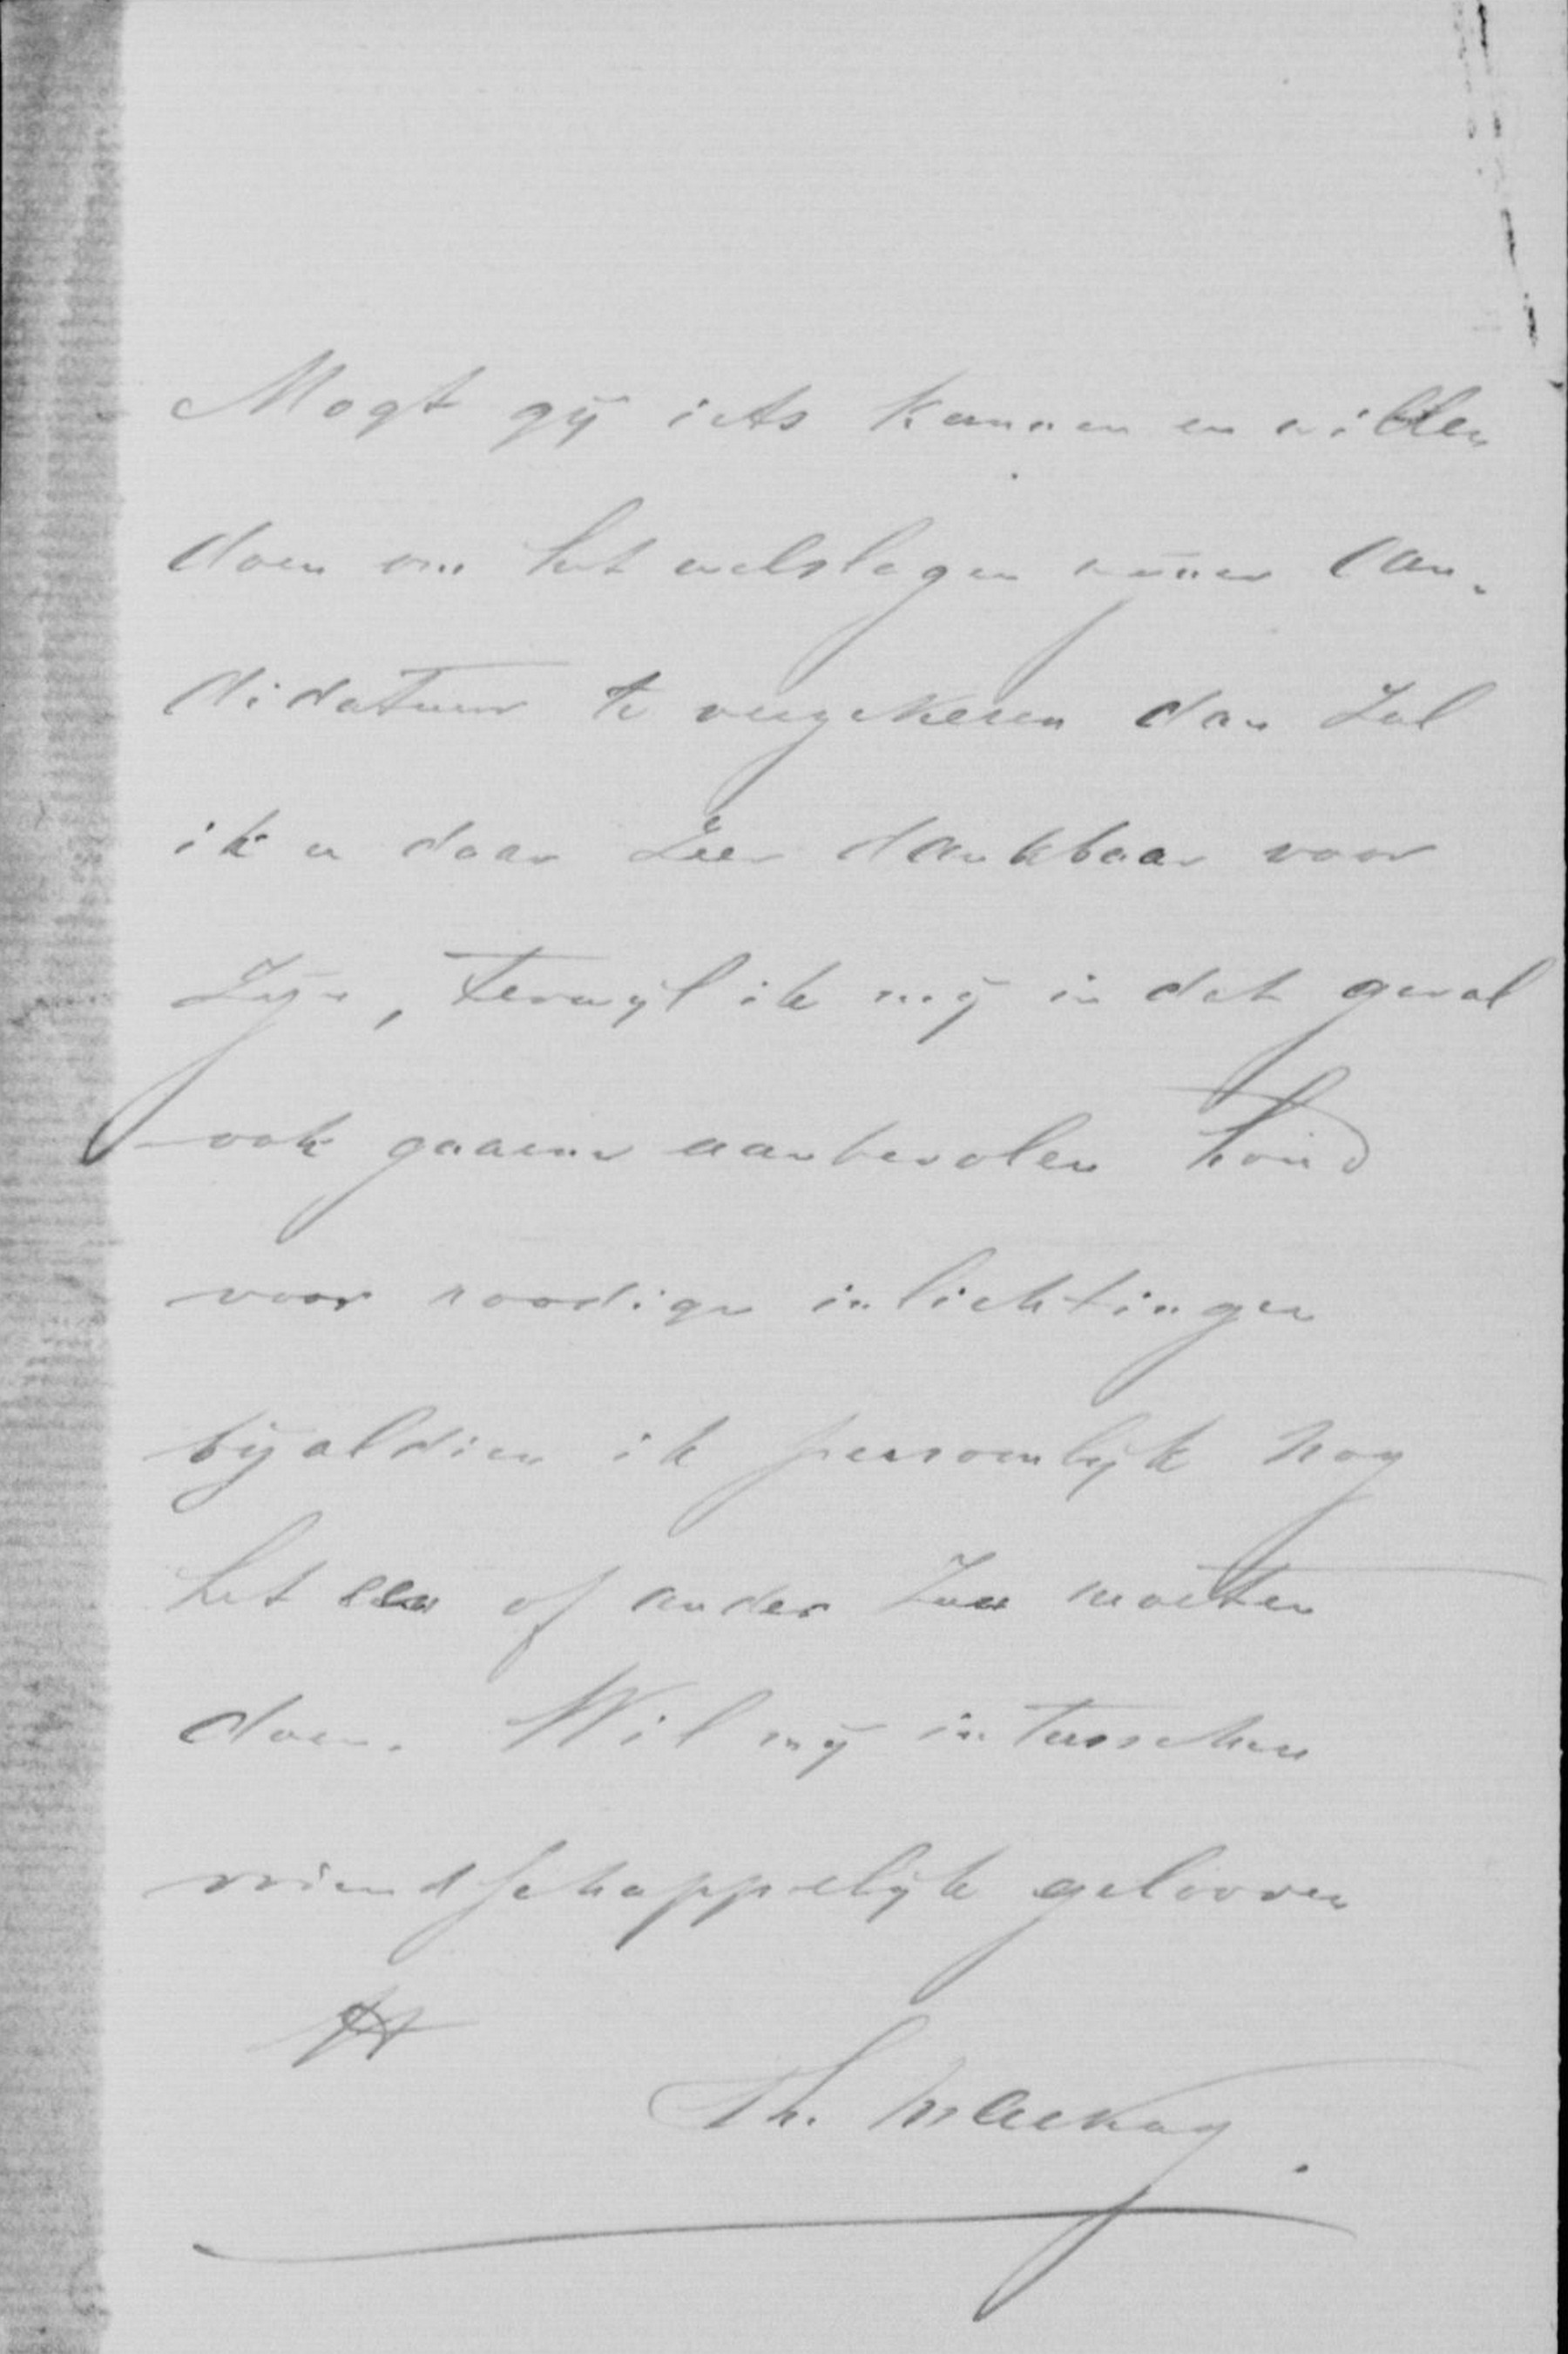 Mogt gij iets kunnen en willen
doen om het welslagen mijner can-
didatuur te verzekeren dan zal
ik u daar zeer dankbaar voor
zijn, terwijl ik mij in dat geval
ook gaarne aanbevolen houd
voor noodige inlichtingen
bijaldien ik persoonlijk nog
het een of ander zou moeten
doen. Wil mij intusschen
vriendschappelijk gelooven
Th. Mackay.